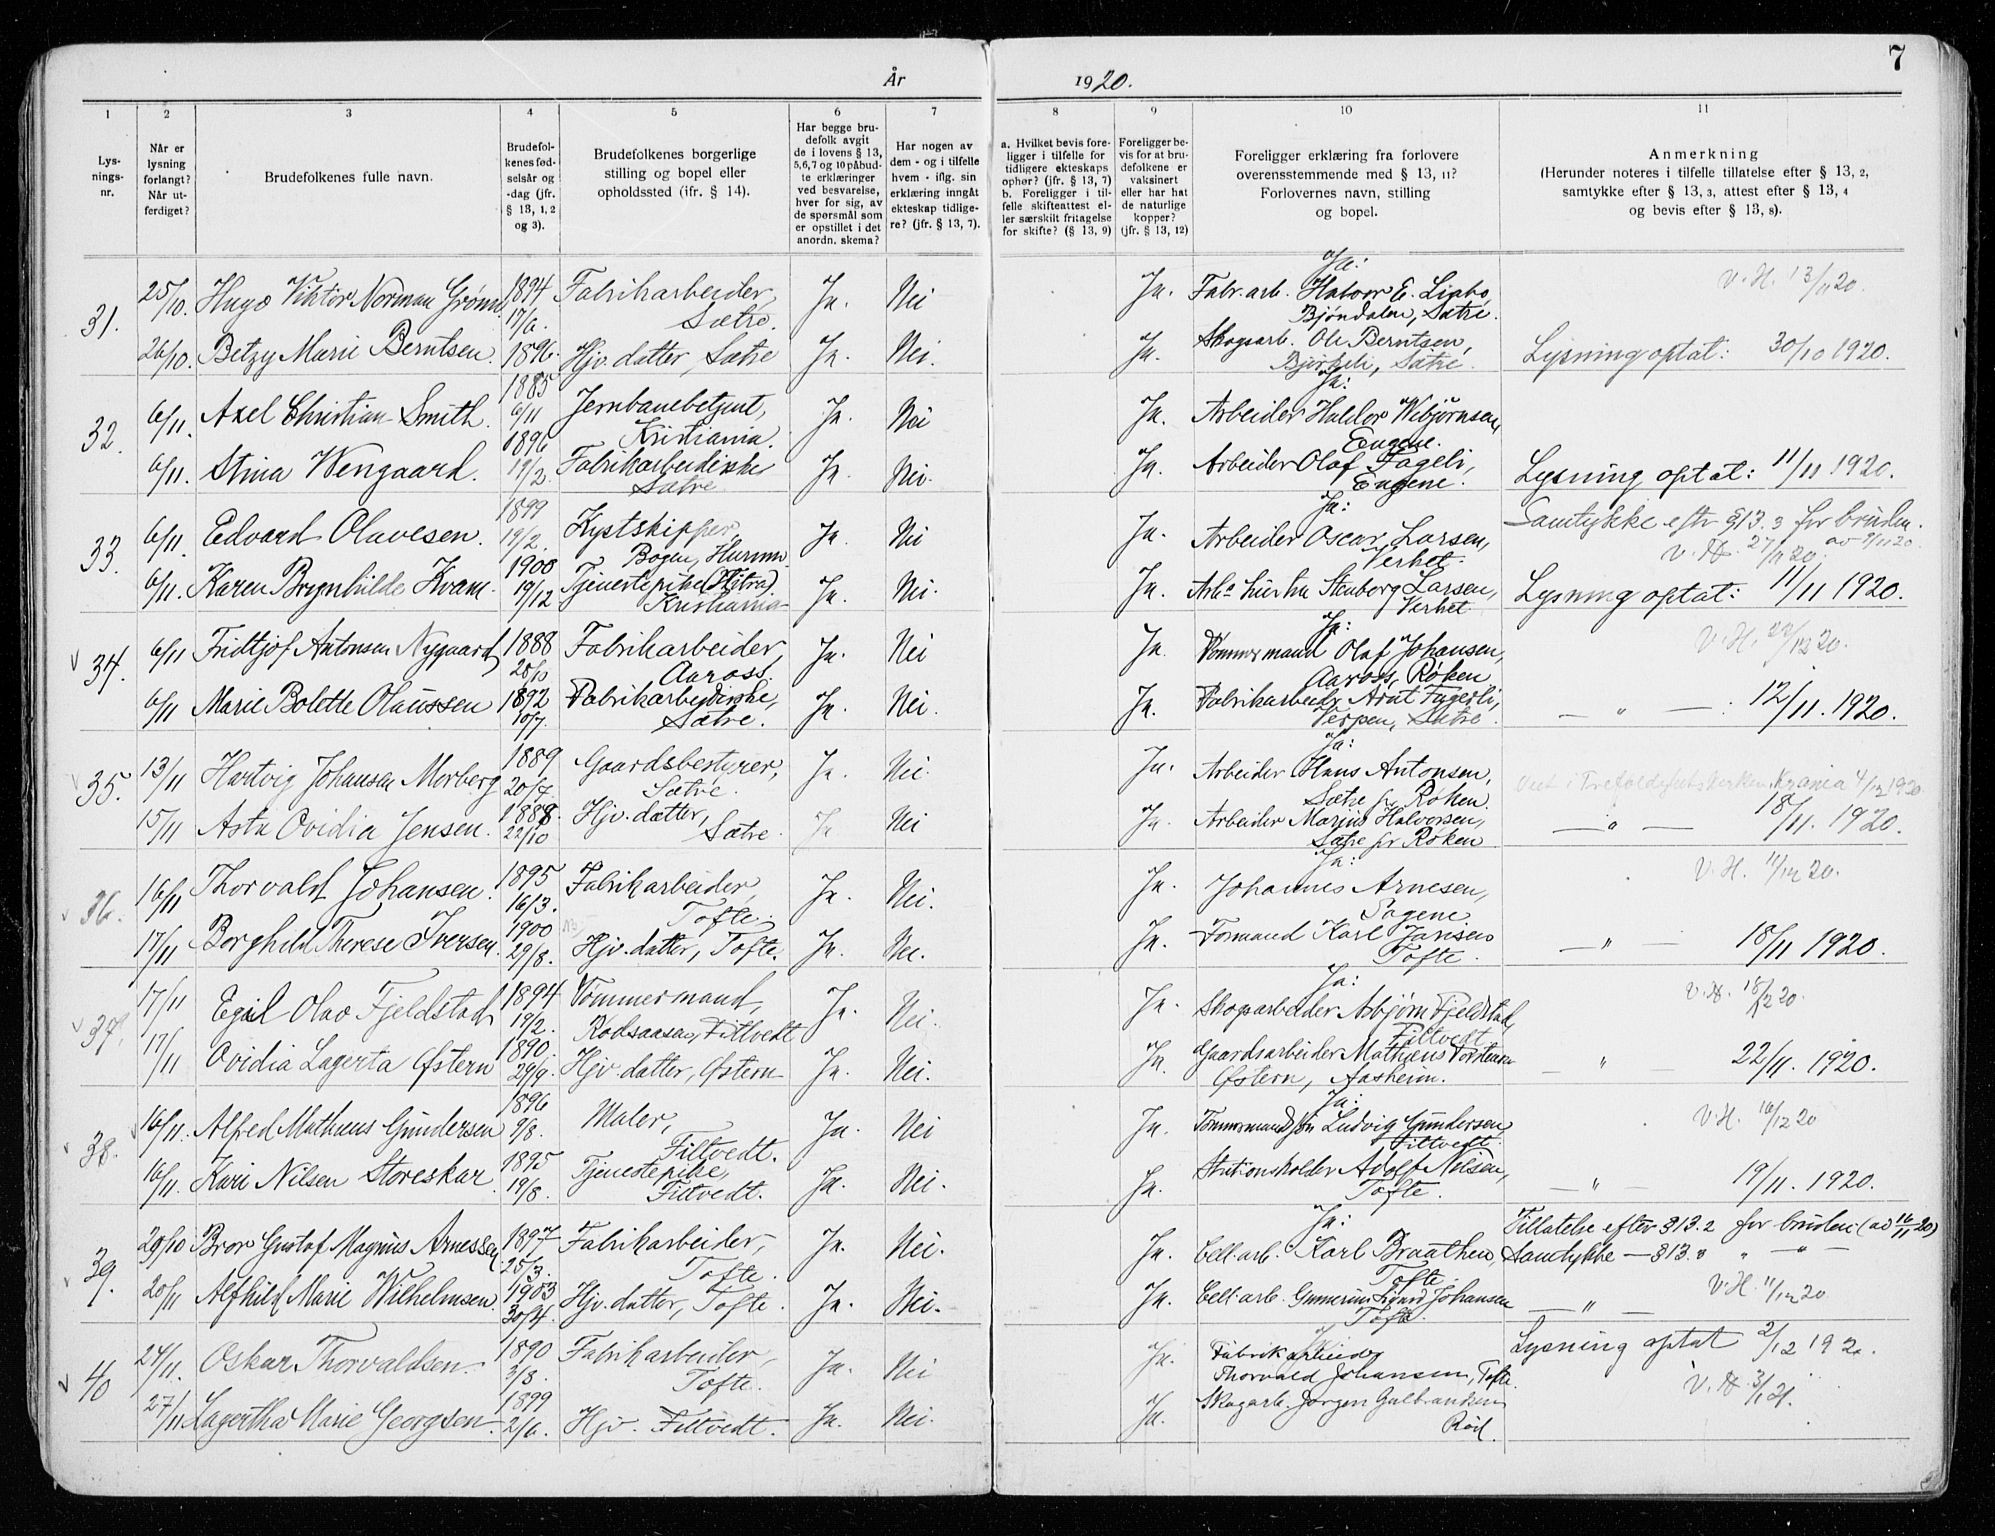 7
År 1920.
1 2 3 4 5 6 7 8 9 10 11
Lys-
nings-
nr.
Når er
lysning
forlangt?
Når ut-
ferdiget?
Brudefolkenes fulle navn.
Brudefol-
kenes fød-
selsår og
-dag (jfr.
§ 13, 1, 2
og 3).
Brudefolkenes borgerlige
stilling og bopel eller
opholdssted (ifr. § 14).
Har begge bru-
defolk avgit
de i lovens § 13,
5,6,7 og 10 påbud-
te erklæringer
ved besvarelse,
hver for sig, av
de spørsmål som
er opstillet i det
anordn. skema?
Har nogen av
dem - og i tilfelle
hvem - iflg. sin
erklæring inngåt
ekteskap tidlige-
re? (jfr. § 13, 7).
a. Hvilket bevis fore-
ligger i tilfelle for
tidligere ekteskaps
ophør? (jfr. § 13, 7)
b. Foreligger i til-
felle skifteattest el-
ler særskilt fritagelse
for skifte? (§ 13, 9)
Foreligger be-
vis for at bru-
defolkene er
vaksinert
eller har hat
de naturlige
kopper?
(jfr. § 13, 12)
Foreligger erklæring fra forlovere
overensstemmende med § 13, 11?
Forlovernes navn, stilling
og bopel.
Anmerkning
(Herunder noteres i tilfelle tillatelse efter § 13, 2,
samtykke efter § 13, 3, attest efter § 13, 4
og bevis efter § 13, 8).
31. 25/10. Hugo Viktor Norman Grønn 1894 17/6. Fabrikarbeider, Sætre. Ja. Nei Ja. Ja: Fabr.arb. Halvor E. Bjøndalen, Sætre. V.H. 13/11 20.
26/10. Betzy Marie Berntsen. 1896. Hjv. datter, Sætre Ja. Nei. Ja. Skogsarb. Ole Berntsen, Sætre. Lysning optat: 30/10 1920.
32. 6/11. Axel Christian Smith. 1885 6/11 Jernbanebetjent, Kristiania. Ja. Nei Ja. Ja: Arbeider Haldor Wibjørnsen, Engene.
6/11. Stina Wengaard. 1896 19/2. Fabrikarbeiderske Sætre Ja. Nei. Ja. Arbeider Olaf Fageli, Engene. Lysning optat: 11/11 1920.
33. 6/11. Edvard Olavesen. 1899 19/2. Kystskipper, Bogen, (Hitra) Ja. Nei Ja. Ja: Arbeider Oscar Larsen, Verket. Samtykke eftr §13.3 for bruden. av 9/11 20. V.H. 27/11 20.
6/11. Karen Brynhilde Kvam. 1900 19/12 Tjenestepike Kristiania Ja. Nei. Ja. Stenberg Larsen, Verket Lysning optat: 11/11 1920.
34. 6/11 Fridtjof Antonsen Nygaard, 1888 Fabrikarbeider, Aaross. Ja. Nei Ja. Ja: Tømmermand Olaf Johansen, Aaross, Røken V.H. 20.
6/11 Marie Bolette Olaussen 1892 10/7. Fabrikarbeiderske, Sætre. Ja. Nei. Ja. Fabrikarbeider Fagerli, Verpen, Sætre. — " — : 12/11. 1920.
35. 13/11 Hartvig Johansen Morberg 1889 20/7. Gaardsbestyrer, Sætre. Ja. Nei. Ja. Ja: Arbeider Hans Antonsen, Sætre pr Røken. Viet i Trefoldighetskirken, Krania 4/12 1920
15/11 Asta Ovidia Jensen. 1888. 22/10 Hjv. datter, Sætre Ja Nei Ja. Arbeider Marius Halvorsen, Sætre pr Røken — " — 18/11. 1920.
36. 16/11 Thorvald Johansen. 1895 16/3. Fabrikarbeider, Tofte. Ja. Nei. Ja. Ja: Johannes Arnesen, Sagene V.H. 11/12 20.
17/11 Borghild Therese Iversen 1900 29/8. Hjv. datter, Tofte. Ja. Nei. Ja. Formand Karl Tofte. — " — 18/11 1920.
37. 17/11 Egil Olav Fjeldstad 1894 19/2. Tømmermand, Filtvedt Ja. Nei. Ja. Ja: Skogsarbeider Asbjørn Fjeldstad, Filtvedt V.H. 18/12 20.
17/11 Ovidia Lagerta Østern 1890. 29/9. Hjv. datter, Østern Ja. Nei. Ja. Gaardsarbeider Mathæus Torstensen Østern, Aasheim. — " — 22/11. 1920.
38. 16/11. Alfred Mathæus Gundersen 1896 9/8. Maler, Filtvedt. Ja. Nei Ja. Ja: Tømmermand Ludvig Gundersen Filtvedt. V.H. 16/12 20
16/11. Kari Nilsen Storeskar 1895 19/8. Tjenestepike, Filtvedt. Ja. Nei. Ja. Stationsholder Adolf Nilsen, Tofte. — " — 19/11. 1920.
39. 29/10 Bror Gustaf Magnus Arnessen. 1897 25/3. Fabrikarbeider, Tofte. Ja. Nei. Ja. Ja: Cell. arb. Karl Braathen, Tofte. Tillatelse efter §13.2 for bruden (av 16/11 20) Samtykke — §13.3 " — " —
20/11 Alfhild Marie Wilhelmsen. 1903 30/4. Hjv. datter, Tofte. Ja. Nei. Ja. Cell. arb. Johansen Tofte. V.H. 11/12 20 — " —
40 24/11. Oskar Thorvaldsen. 1890 3/8. Fabrikarbeider, Tofte. Ja. Nei Ja. Ja Fabrikarbeider Thorvald Johansen, Tofte. Lysning optat 2/12 192.
27/11 Lagertha Marie Georgsen. 1899 2/6. Hjv. Filtvedt. Ja. Nei. Ja. Skogarb. Jørgen Gulbransen Rød. V.H. 3/1 21.